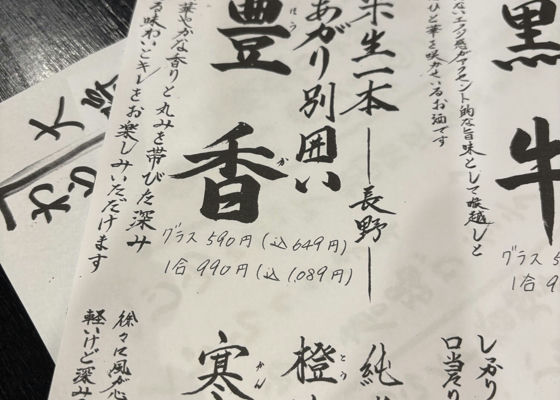 黒
牛
ないエフジ感がアクセント的な旨味として喉越しと
ひと華を咲かせているお酒です
グラス 5
1合 9
生一本
長野
あがり別囲い
豊
香
ほう
か
グラス 590円(込649円)
1合 990円(込1,089円)
華やかな香りと丸みを帯びた深み
る味わいとキレをお楽しみいただけます
しっかり
口当たり
純
橙
とう
寒
かん
徐々に風が心
軽いけど深み